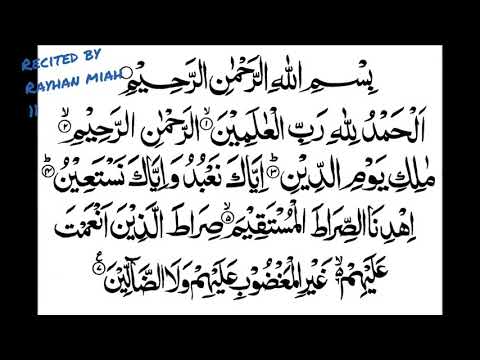 RECITED BY
RAYHAN MIAH
بِسْمِ اللهِ الرَّحْمٰنِ الرَّحِيْمِ
اَلْحَمْدُ لِلّٰهِ رَبِّ الْعٰلَمِيْنَ ۙ‏﴿۱﴾ الرَّحْمٰنِ الرَّحِيْمِ ۙ‏﴿۲﴾
مٰلِكِ يَوْمِ الدِّيْنِ ؕ‏﴿۳﴾ اِيَّاكَ نَعْبُدُ وَاِيَّاكَ نَسْتَعِيْنُ ؕ‏﴿۴﴾
اِهْدِنَا الصِّرَاطَ الْمُسْتَقِيْمَ ۙ‏﴿۵﴾ صِرَاطَ الَّذِيْنَ اَنْعَمْتَ
عَلَيْهِمْ ۙ۬ غَيْرِ الْمَغْضُوْبِ عَلَيْهِمْ وَلَا الضَّآلِّيْنَ ﴿۷﴾